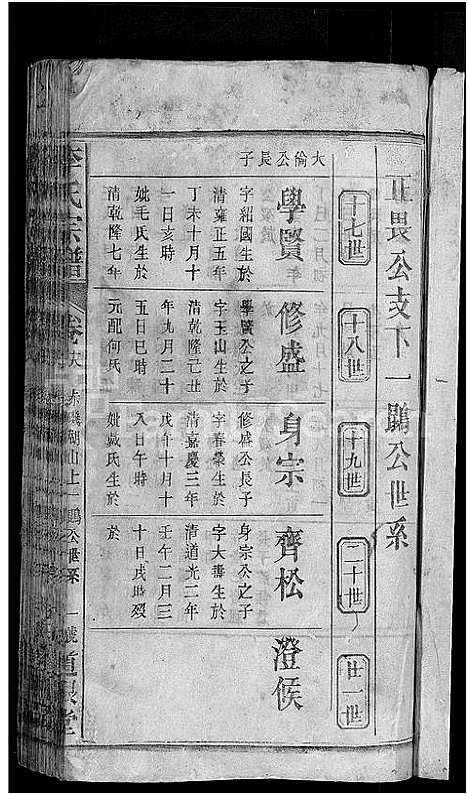 正畏公支下一鶚公世系
十七世
十八世
十九世
二十世
廿一世
大倫公長子
學賢
字紹國生於
清雍正五年
丁未十月十
一日亥時
妣毛氏生於
清乾隆七年
修盛
學賢公之子
字玉山生於
清乾隆己丑
年九月二十
五日巳時
元配何氏
身宗
修盛公長子
字春榮生於
清嘉慶三年
戊午十月十
八日午時
妣戴氏生於
齊松
身宗公之子
字大壽生於
清道光二年
壬午二月三
十日戌時歿
於
澄候
李氏宗譜
卷
赤磯湖山上一鶚公世系
一號